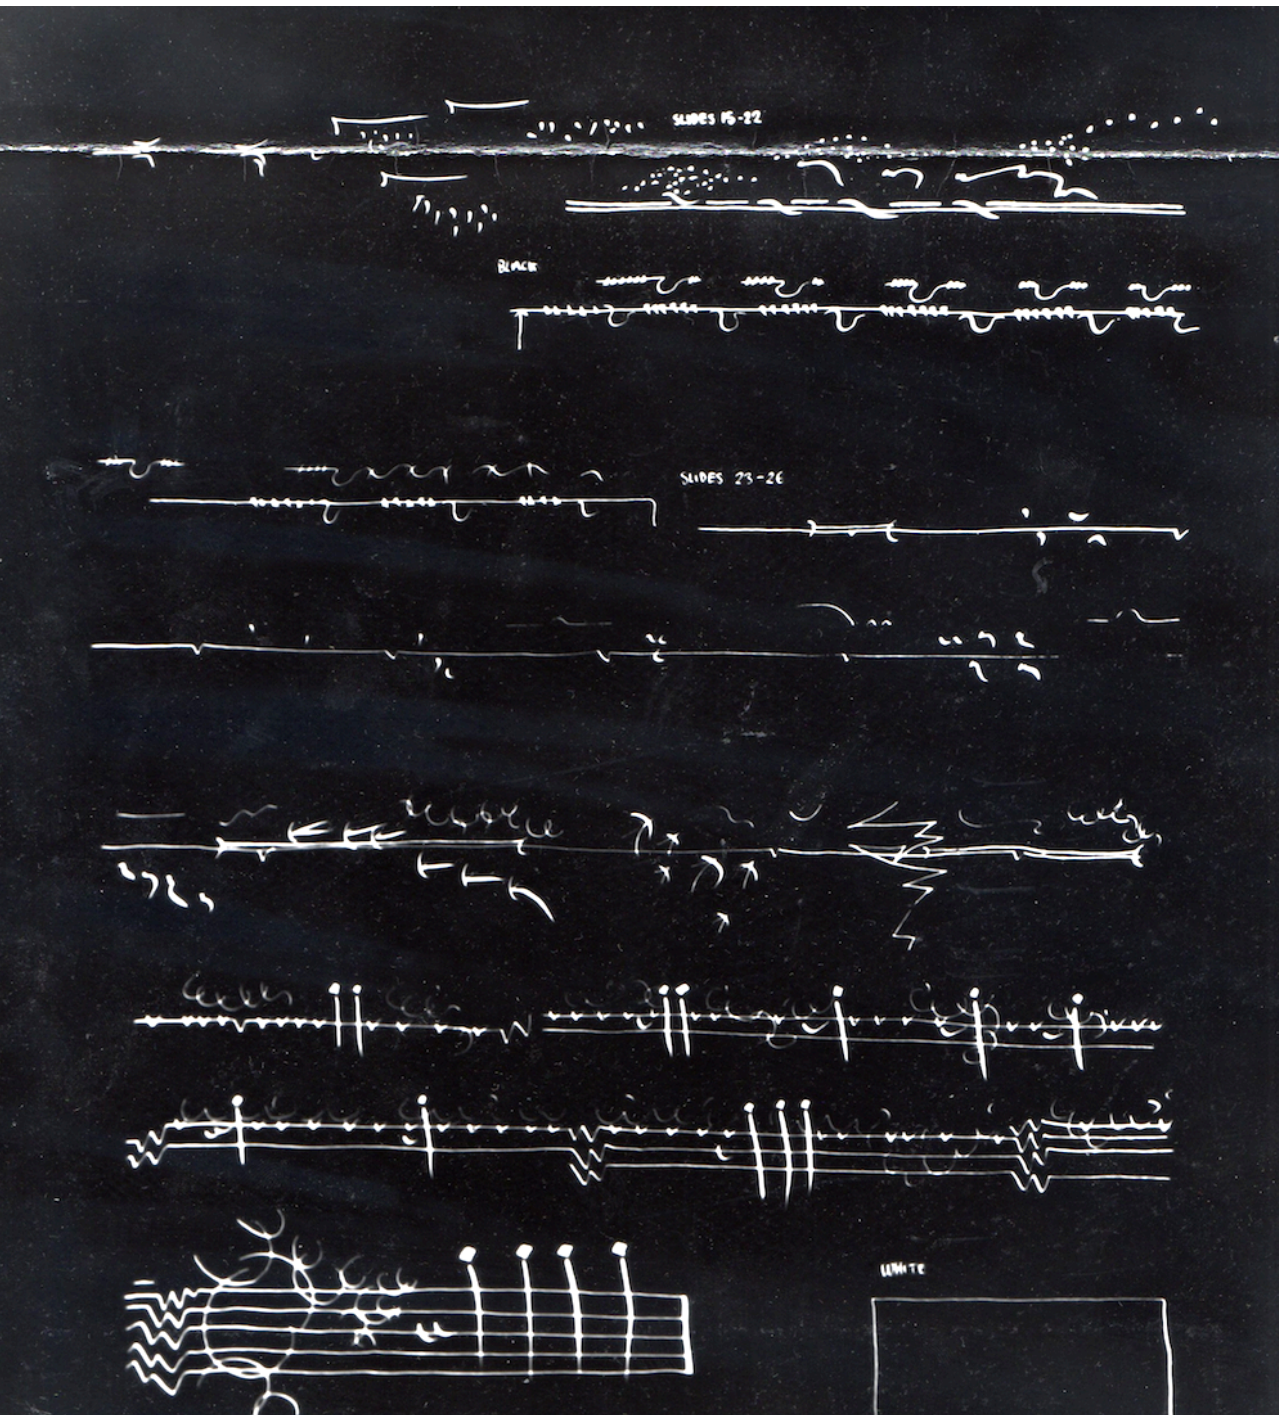 SLIDES 15-22
BLACK
SLIDES 23-26
WHITE